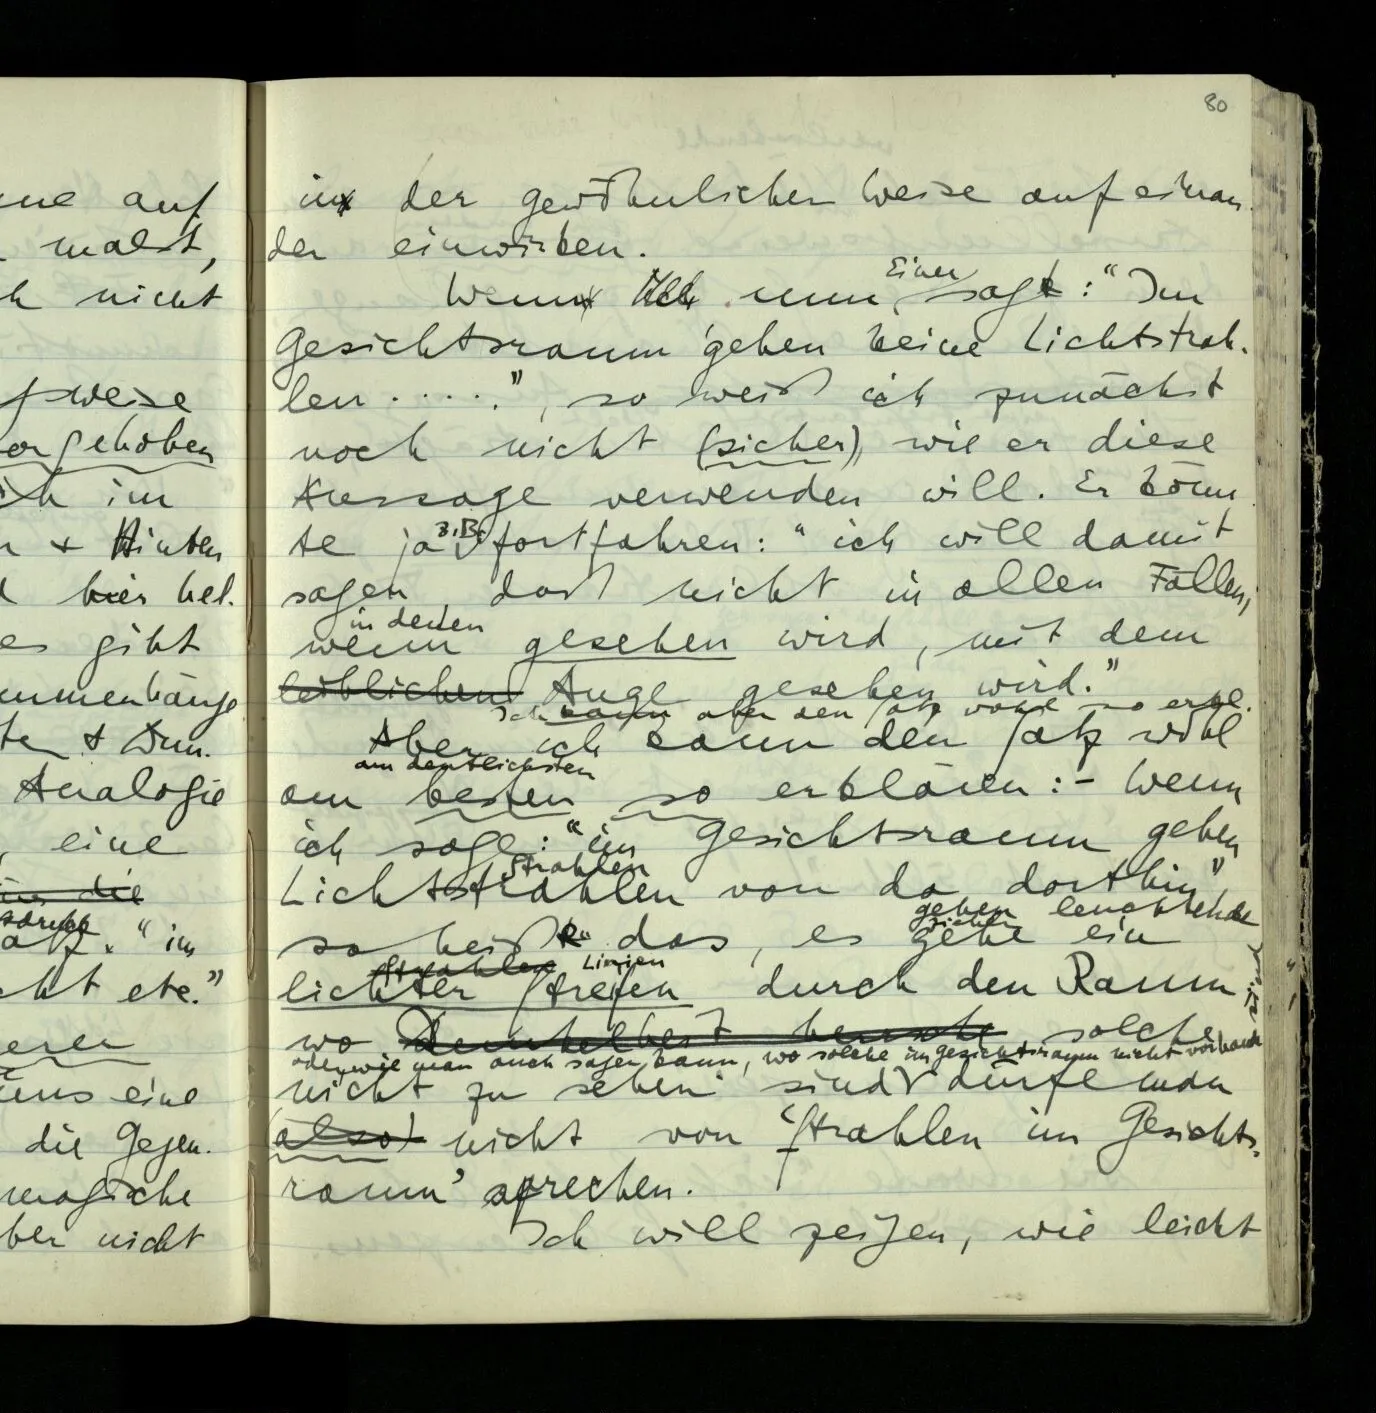 ne auf
malst,
h nicht
weise
orgehoben
ich im
+ Hinten
hier hel.
es gibt
mmenhänge
ten + Dun.
Analogie
, eine
die
atz. "im
cht etc."
erer
uns eine
die Gegen.
magische
ber nicht
80
in der gewöhnlichen Weise auf einan.
der einwirken.
Einer
Wenn Ich nun sagt: "Im
Gesichtsraum gehen keine Lichtstrah.
len ....", so weiß ich zunächst
noch nicht (sicher), wie er diese
Aussage verwenden will. Er könn
z.B.
te ja fortfahren: "ich will damit
sagen daß nicht in allen Fällen,
in denen
wenn gesehen wird, mit dem
leiblichen Auge gesehen wird."
Ich kann aber den Satz wohl so erkl.
Aber ich kann den Satz wohl
am deutlichsten
am besten so erklären:– Wenn
ich sage: "im Gesichtsraum gehen
Strahlen
Lichtstrahlen von da dorthin",
gehen leuchtende
so heißt das, es gehe ein
Strahlen Linien
lichter Streifen durch den Raum
sind
wo Dunkelheit herrscht solche
oder wie man auch sagen kann, wo solche im Gesichtsraum nicht vorhanden
nicht zu sehen sind dürfe man
(also) nicht von 'Strahlen im Gesichts.
raum' sprechen.
Ich will zeigen, wie leicht